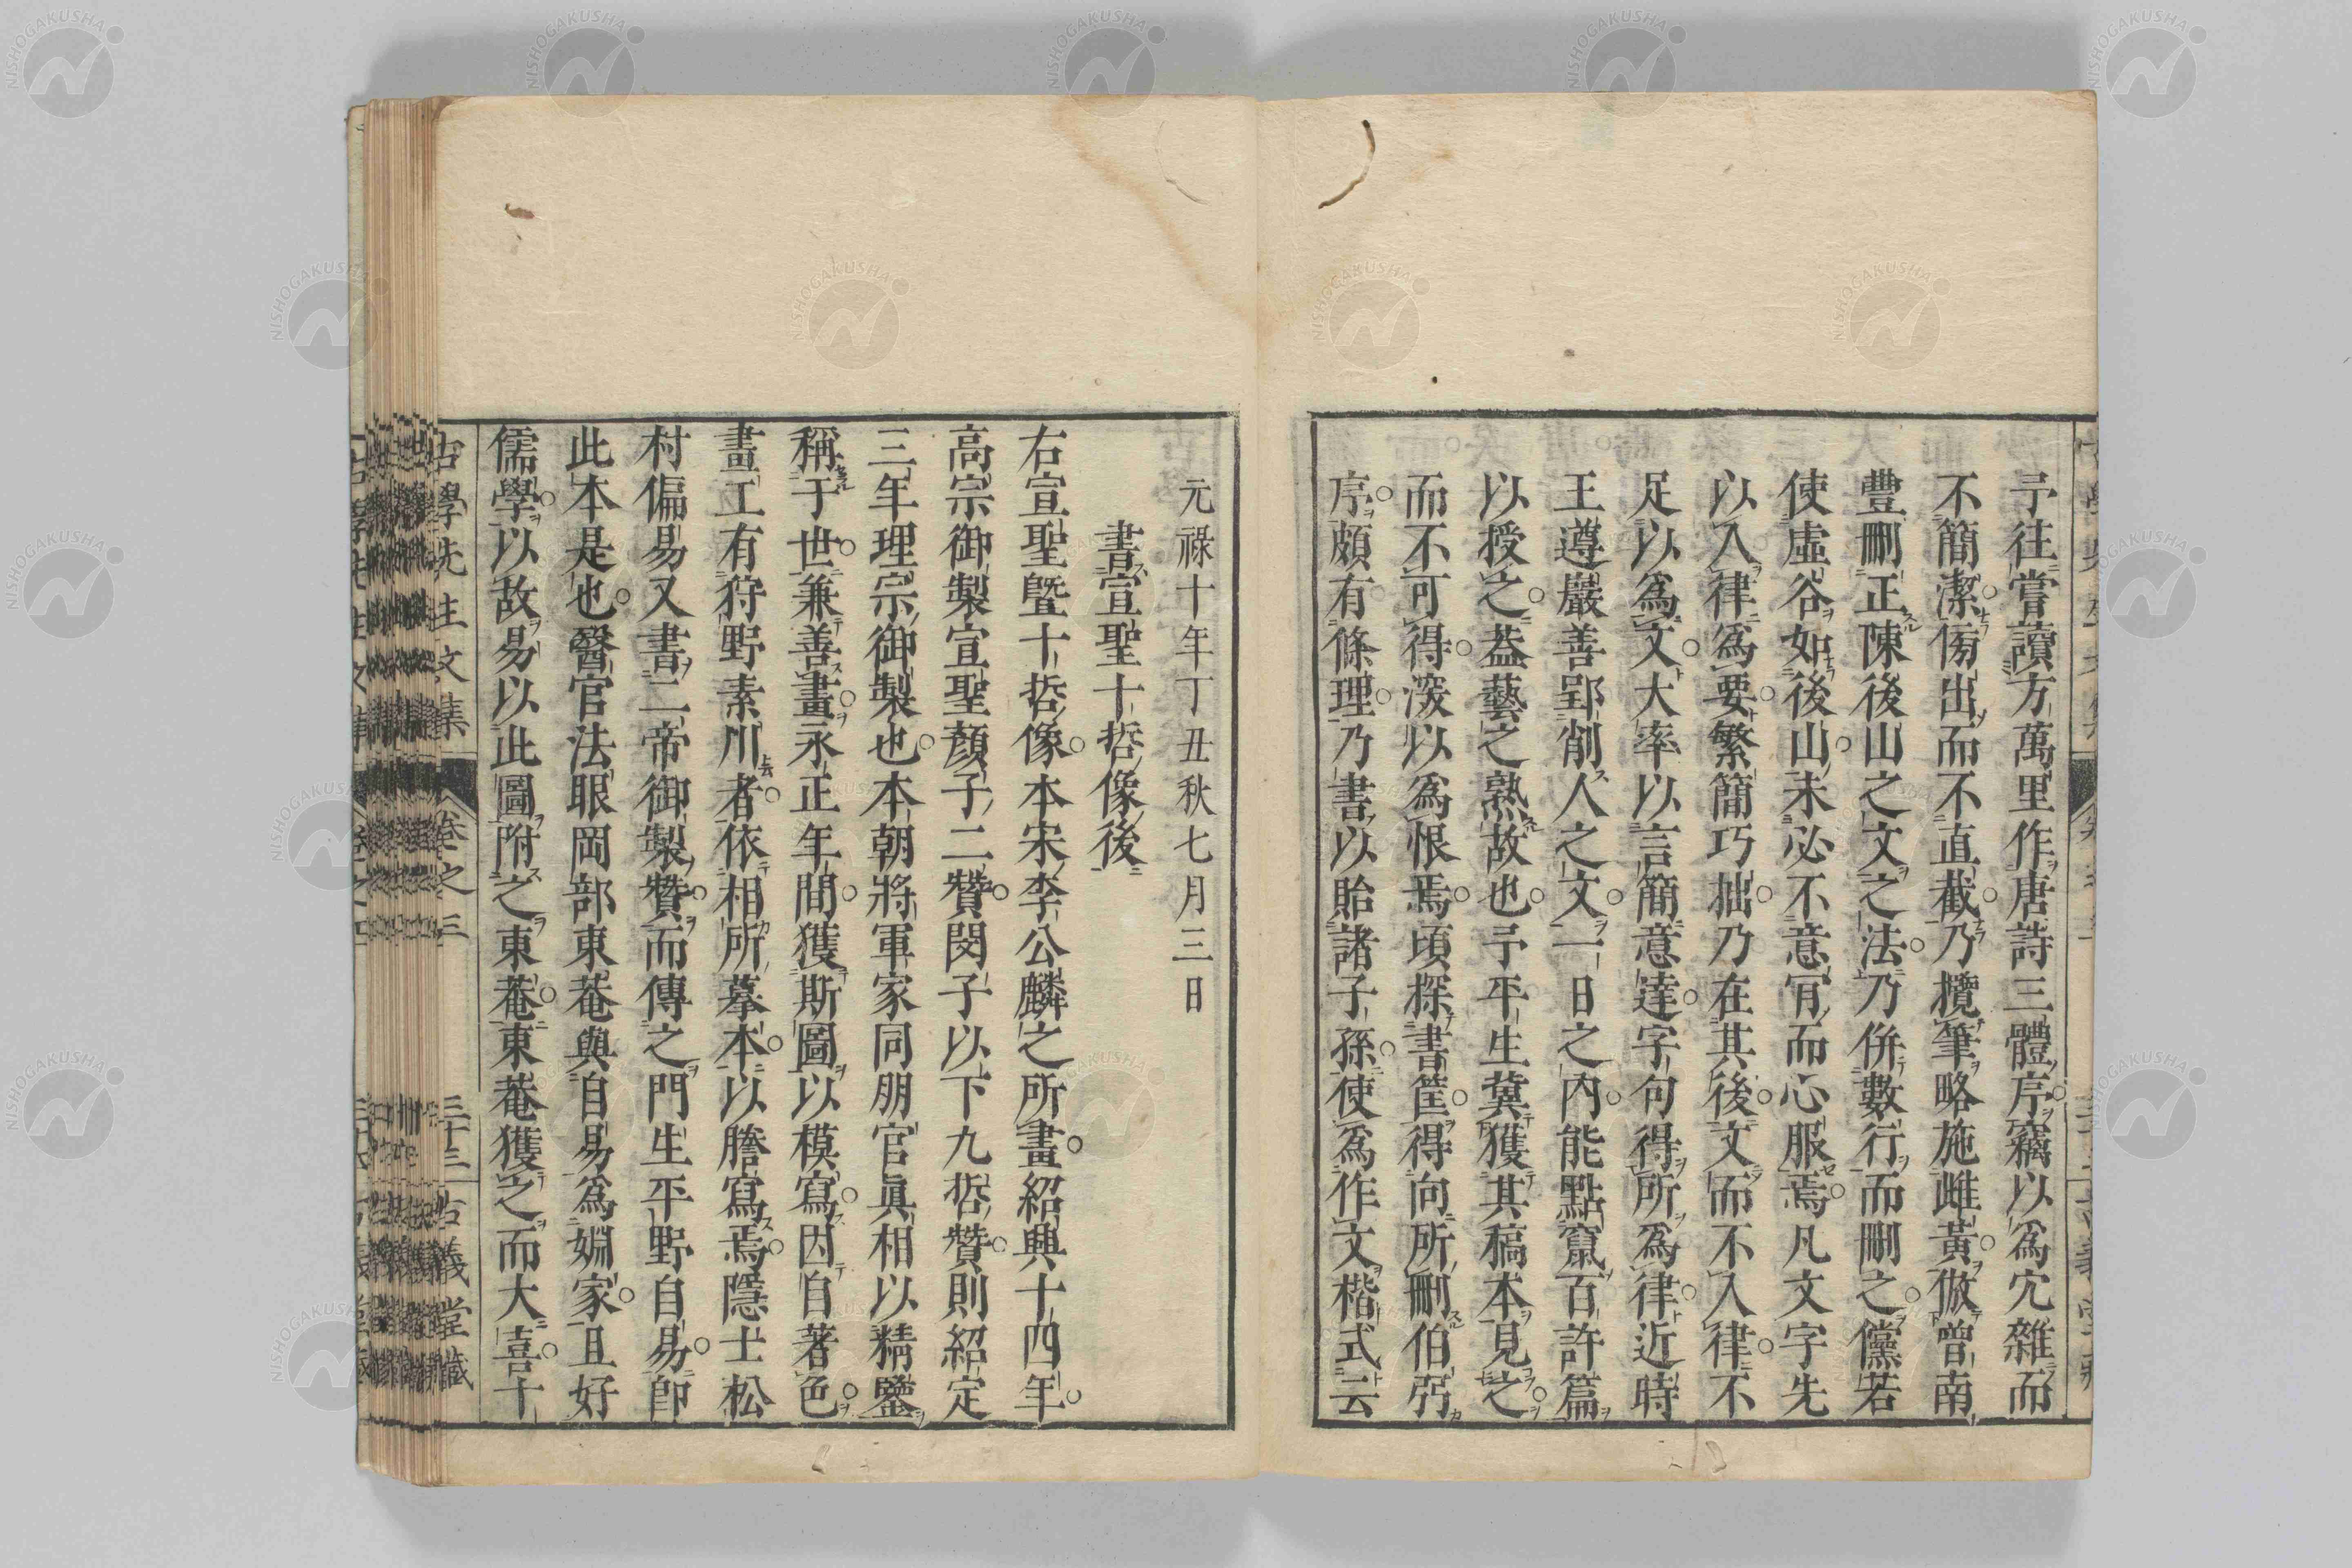 予往嘗讀方萬里作唐詩三體序竊以爲冗雜而
不簡潔傍出而不直截乃攬筆略施雌黃倣曾南
豐刪正陳後山之文之法乃併數行而刪之儻若
使虛谷如後山未必不意肯而心服焉凡文字先
以入律爲要繁簡巧拙乃在其後文而不入律不
足以爲文大率以言簡意達字句得所爲律近時
王遵嚴善郢削人之文一日之內能點竄百許篇
以授之葢藝之熟故也予平生冀獲其稿本見之
而不可得深以爲恨焉頃探書筐得向所刪伯弜
序頗有條理乃書以貽諸子孫使爲作文楷式云
元祿十年丁丑秋七月三日
書宣聖十哲像後
右宣聖曁十哲像本宋李公麟之所畫紹興十四年
高宗御製宣聖顏子二贊閔子以下九哲贊則紹定
三年理宗御製也本朝將軍家同朋官眞相以精鑒
稱于世兼善畫永正年間獲斯圖以模寫因自著色
畫工有狩野素川者依相所摹本以謄寫焉隱士松
村偏易又書二帝御製贊而傳之門生平野自易卽
此本是也醫官法眼岡部東菴與自易爲姻家且好
儒學以故易以此圖附之東菴東菴獲之而大喜十
古學先生文集 卷之三 三十三 古義堂藏